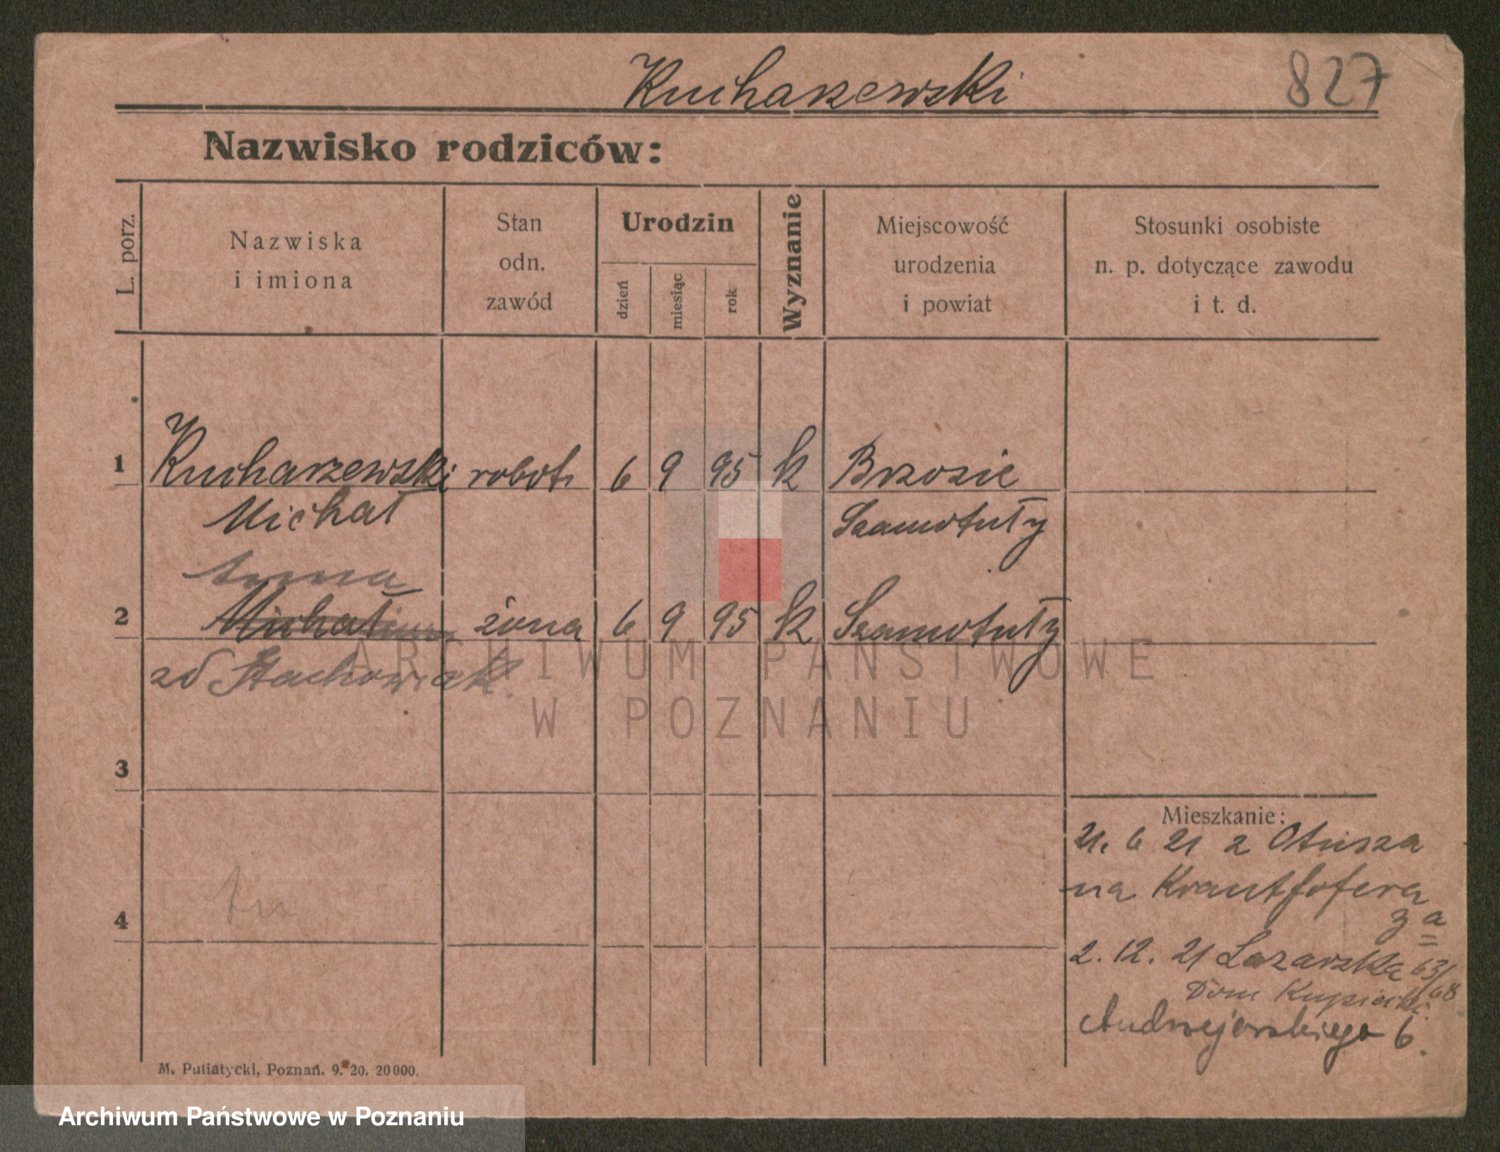 Kucharzewski
827
Nazwisko rodziców:
L. porz.
Nazwiska
i imiona
Stan
odn.
zawód
Urodzin
dzień
miesiąc
rok
Wyznanie
Miejscowość
urodzenia
i powiat
Stosunki osobiste
n. p. dotyczące zawodu
i t. d.
1 Kucharzewski robotn 6 9 95 k Brzozie
Michał Szamotuły
2 Michał żona 6 9 95 k Szamotuły
zd Stachowiak
ARCHIWUM PAŃSTWOWE
W POZNANIU
3
Mieszkanie:
21. 6 21 z Otusza
na Krauthofera
3 a
4
2. 12. 21 Łazarska 63/68
Dom
Andrzejewskiego 6.
M. Putiatycki, Poznań. 9. 20. 20000.
Archiwum Państwowe w Poznaniu